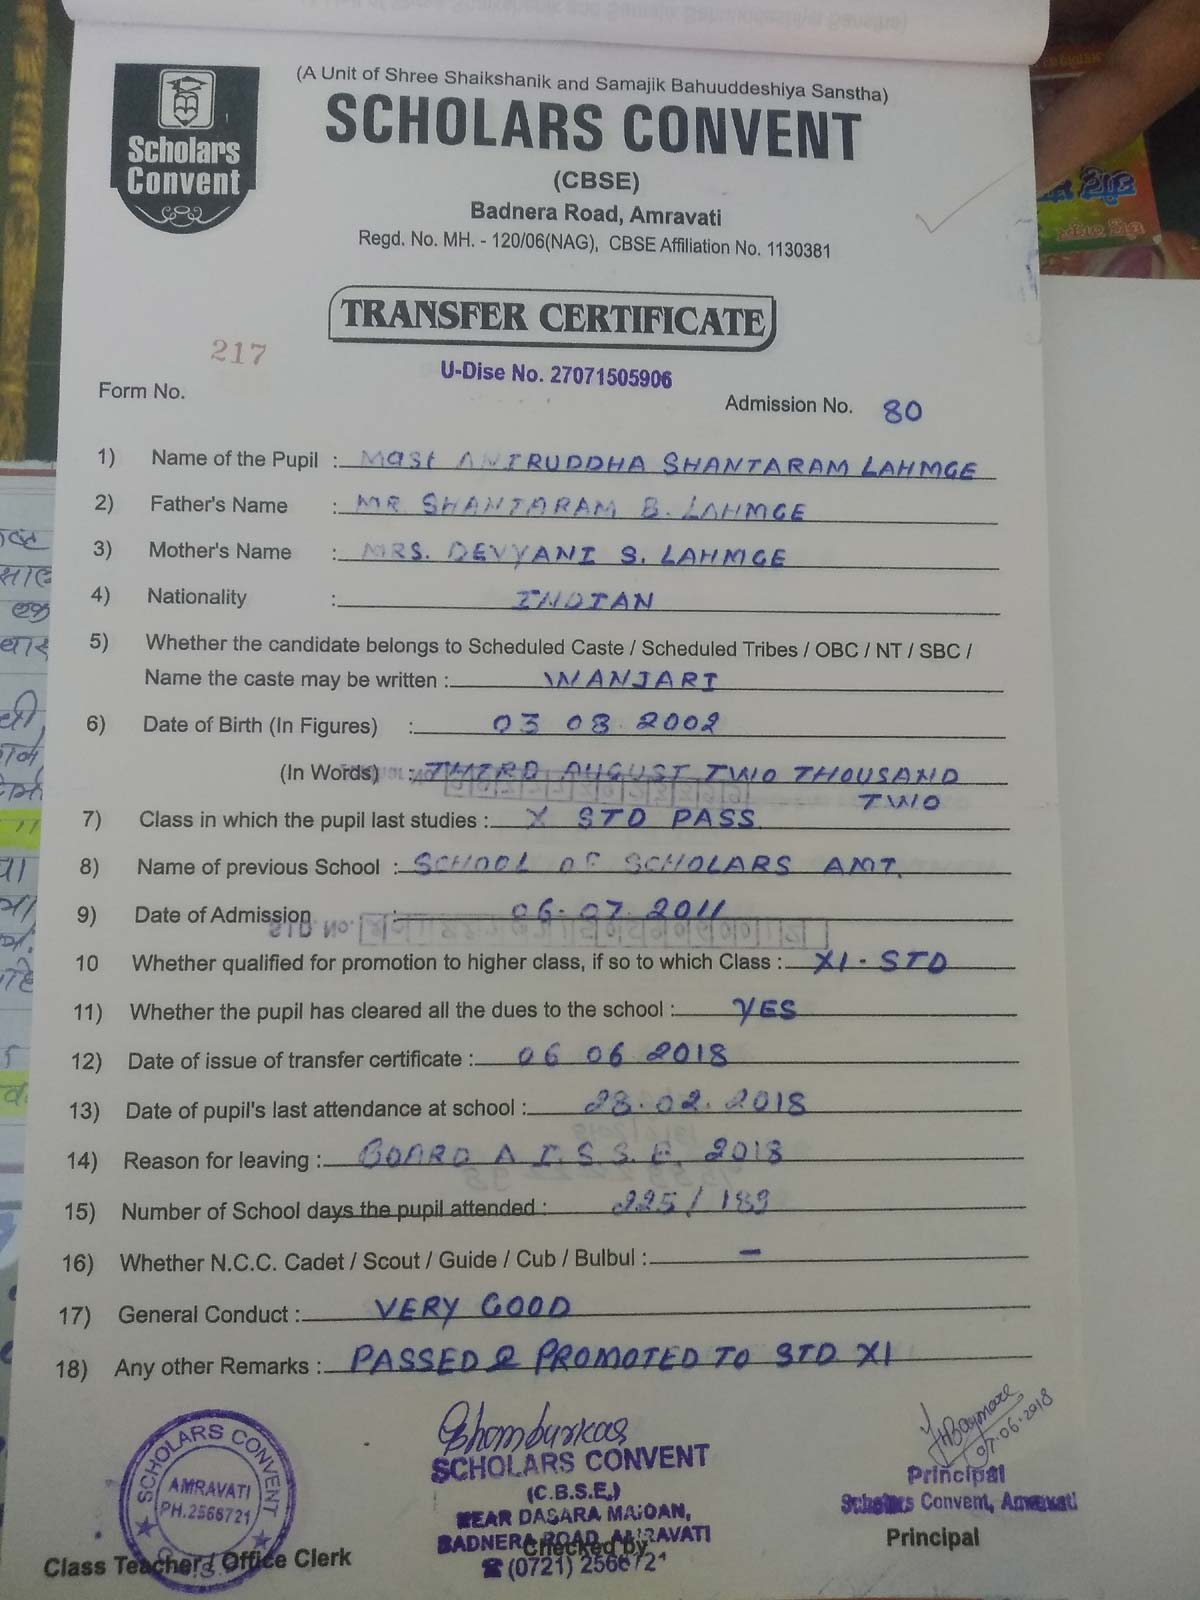 (A Unit of Shree Shaikshanik and Samajik Bahuuddeshiya Sanstha)
Scholars
Convent
SCHOLARS CONVENT
(CBSE)
Badnera Road, Amravati
Regd. No. MH. - 120/06(NAG), CBSE Affiliation No. 1130381
TRANSFER CERTIFICATE
217
U-Dise No. 27071505906
Form No.
Admission No. 80
1) Name of the Pupil : Mast ANIRUDDHA SHANTARAM LAHMGE
2) Father's Name : MR. SHANTARAM B. LAHMGE
3) Mother's Name : MRS. DEVYANI S. LAHMGE
4) Nationality : INDIAN
5) Whether the candidate belongs to Scheduled Caste / Scheduled Tribes / OBC / NT / SBC /
Name the caste may be written : WANJARI
6) Date of Birth (In Figures) : 03 08.2002
(In Words) : THIRD AUGUST TWO THOUSAND
TWO
7) Class in which the pupil last studies : X STD PASS
8) Name of previous School : SCHOOL OF SCHOLARS AMT.
9) Date of Admission : 06-07.2011
10 Whether qualified for promotion to higher class, if so to which Class : XI - STD
11) Whether the pupil has cleared all the dues to the school : YES
12) Date of issue of transfer certificate : 06 06 2018
13) Date of pupil's last attendance at school : 28.02.2018
14) Reason for leaving : BOARD A.I.S.S.E. 2018
15) Number of School days the pupil attended : 225 / 189
16) Whether N.C.C. Cadet / Scout / Guide / Cub / Bulbul : -
17) General Conduct : VERY GOOD
18) Any other Remarks : PASSED & PROMOTED TO STD XI
SCHOLARS CONVENT
AMRAVATI
PH.2566721
07.06.2018
SCHOLARS CONVENT
(C.B.S.E.)
NEAR DASARA MAIDAN,
BADNERA ROAD, AMRAVATI
☎ (0721) 2566721
Principal
Scholars Convent, Amravati
Class Teacher / Office Clerk
Checked by
Principal